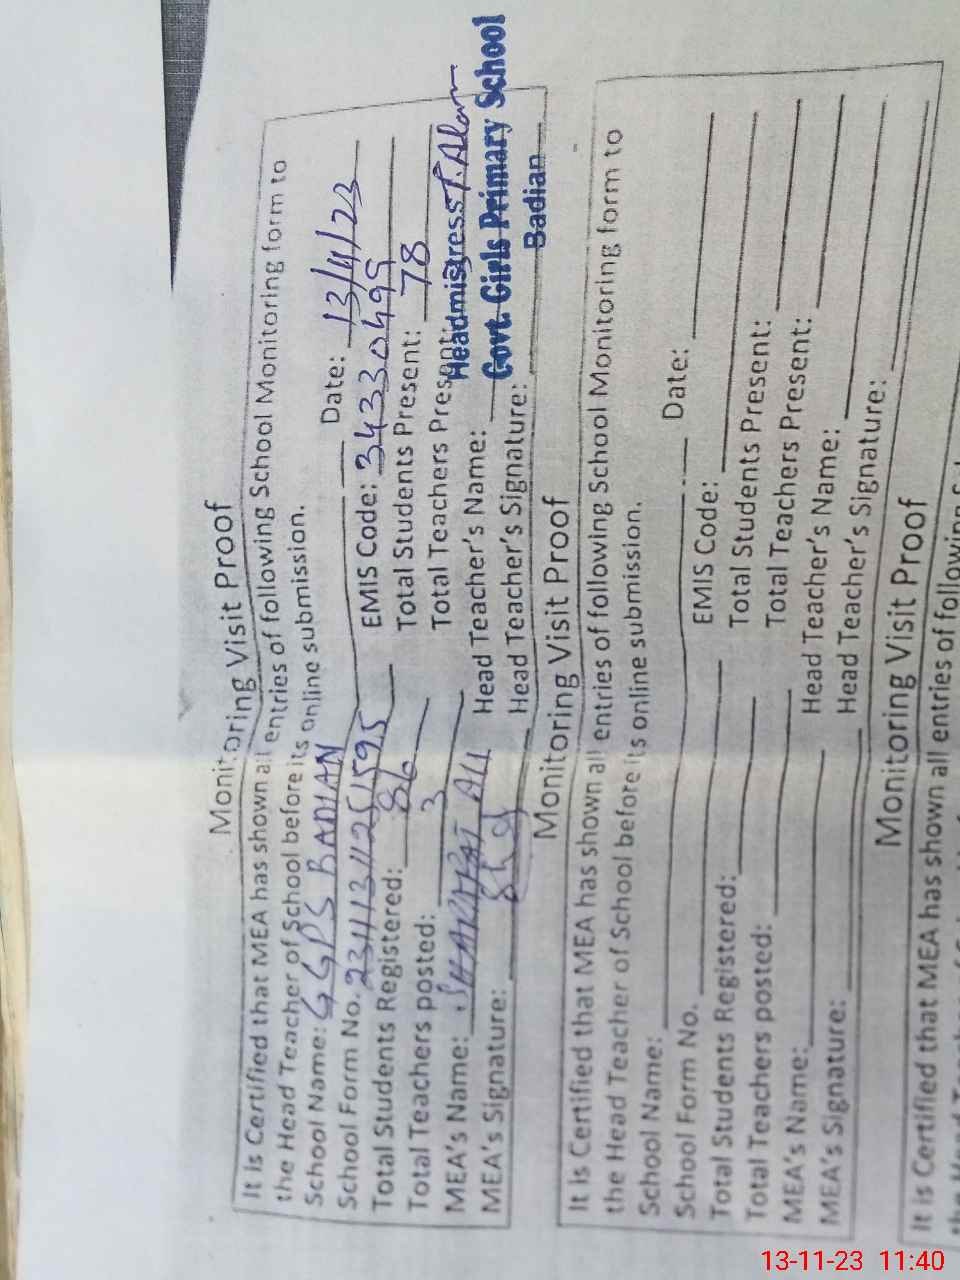 Monitoring Visit Proof
It is Certified that MEA has shown all entries of following School Monitoring form to
the Head Teacher of School before its online submission.
School Name: GGPS BADIAN Date: 13/11/23
School Form No. EMIS Code: 34330499
Total Students Registered: 86 Total Students Present: 78
Total Teachers posted: 3 Total Teachers Present:
MEA's Name: SHARAFAT ALI Head Teacher's Name:
MEA's Signature: Head Teacher's Signature:
Headmistress
Govt. Girls Primary School
Badian
Monitoring Visit Proof
It is Certified that MEA has shown all entries of following School Monitoring form to
the Head Teacher of School before its online submission.
School Name: Date:
School Form No. EMIS Code:
Total Students Registered: Total Students Present:
Total Teachers posted: Total Teachers Present:
MEA's Name: Head Teacher's Name:
MEA's Signature: Head Teacher's Signature:
Monitoring Visit Proof
It is Certified that MEA has shown all entries of following
13-11-23 11:40